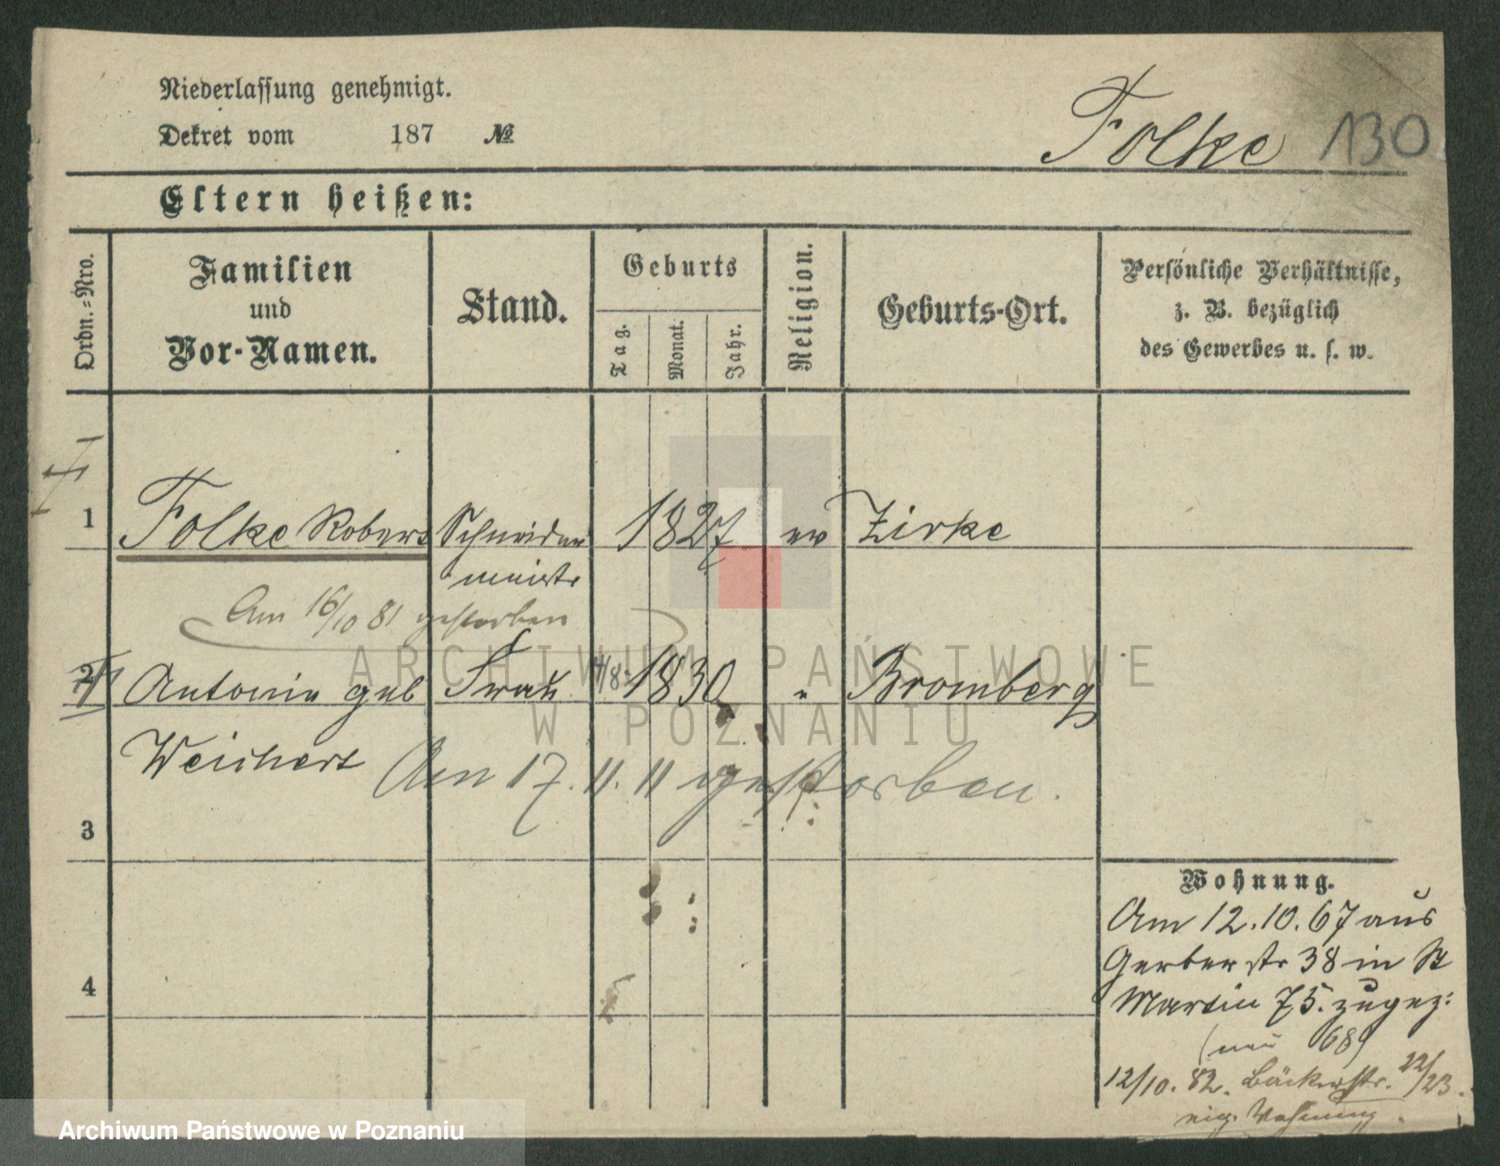 Niederlassung genehmigt.
Dekret vom 187 №
Folke 130
Eltern heißen:
Ordn.=Nro.
Familien
und
Vor-Namen.
Stand.
Geburts
Tag.
Monat.
Jahr.
Religion.
Geburts-Ort.
Persönliche Verhältnisse,
z. B. bezüglich
des Gewerbes u. s. w.
1 Folke Robert Schneider 1827 ev Zirke
meistr
Am 16/10 81 gestorben
2 Antonie geb Frau 1830 " Bromberg
Weichert
Am 17. 11. 11 gestorben.
3
4
Wohnung.
Am 12.10.67 aus
Gerberstr 38 in St
Martin 75. zugez:
(neu 68)
12/10. 82. Bäckerstr. 22/23.
Wohnung
ARCHIWUM PAŃSTWOWE
W POZNANIU
Archiwum Państwowe w Poznaniu